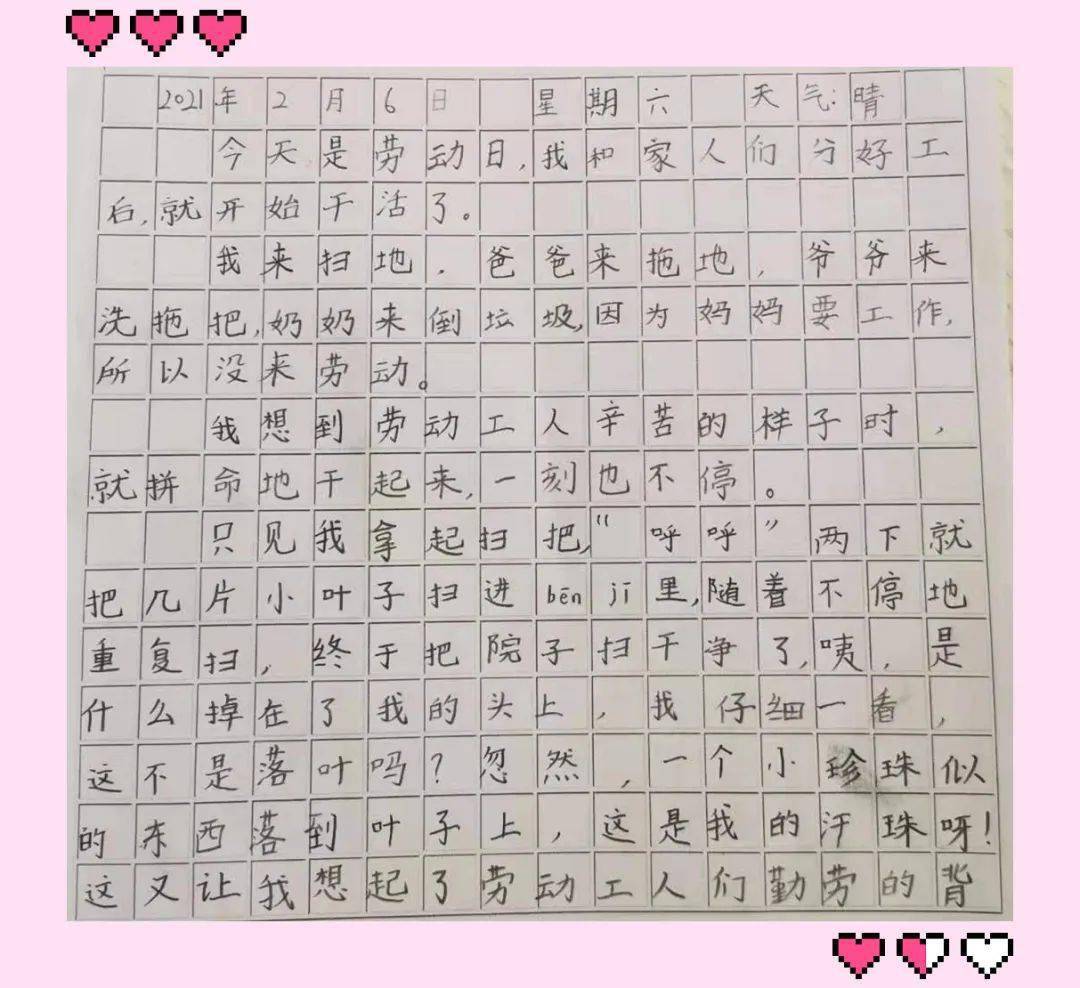 2021年2月6日 星期六 天气:晴
今天是劳动日,我和家人们分好工
后,就开始干活了。
我来扫地,爸爸来拖地,爷爷来
洗拖把,奶奶来倒垃圾,因为妈妈要工作,
所以没来劳动。
我想到劳动工人辛苦的样子时,
就拼命地干起来,一刻也不停。
只见我拿起扫把,“呼呼”两下就
把几片小叶子扫进bēn jī里,随着不停地
重复扫,终于把院子扫干净了,咦,是
什么掉在了我的头上,我仔细一看,
这不是落叶吗?忽然,一个小珍珠似
的东西落到叶子上,这是我的汗珠呀!
这又让我想起了劳动工人们勤劳的背